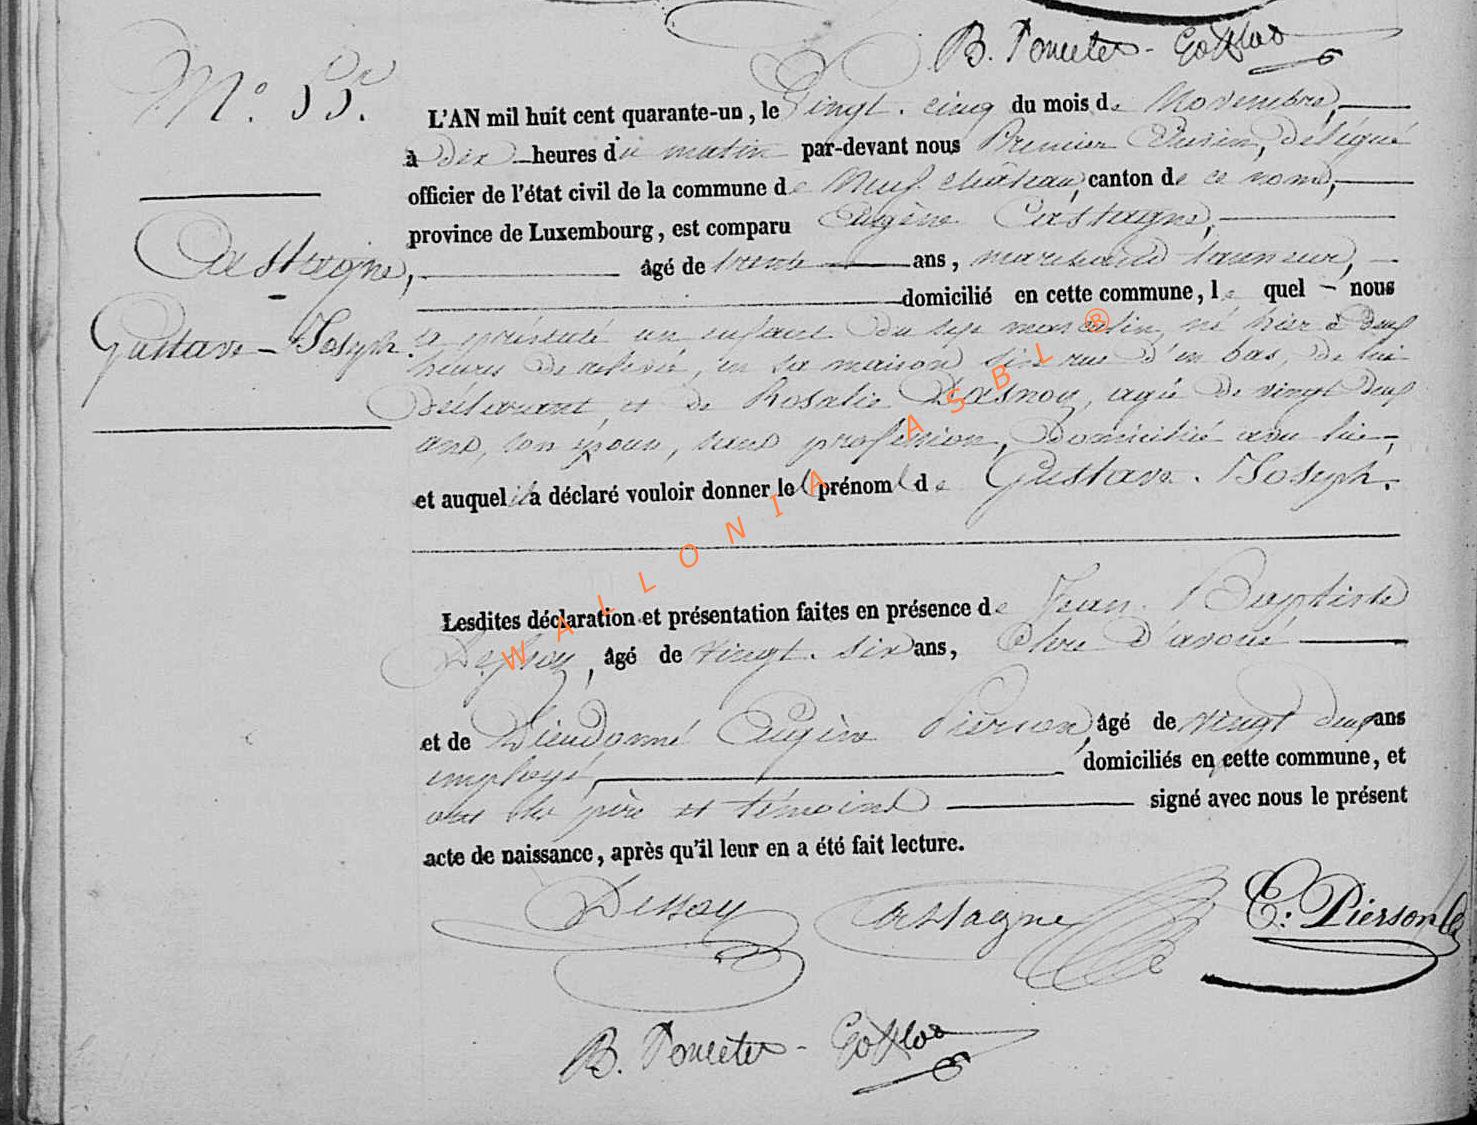 B. Poncelet - 
N.° 55.
L'AN mil huit cent quarante-un, le Vingt-cinq du mois de Novembre,
à dix heures du matin par-devant nous Premier Echevin, délégué
officier de l'état civil de la commune de Neufchâteau, canton de ce nom,
province de Luxembourg, est comparu Eugène Castagne,
Castagne,
Gustave-Joseph.
âgé de trente ans, marchand tanneur,
domicilié en cette commune, le quel nous
a présenté un enfant du sexe masculin, né hier à deux
heures de relevée, en sa maison sise rue d'en bas, de lui
déclarant et de Rosalie Dasnoy, agée de vingt deux
ans, son épouse, sans profession, domiciliée au dit lieu,
et auquel il a déclaré vouloir donner le prénom de Gustave-Joseph.
Lesdites déclaration et présentation faites en présence de Jean-Baptiste
Dessoy, âgé de vingt-six ans, Clerc d'avoué
et de Dieudonné Eugène Pierson, âgé de vingt deux ans
employé, domiciliés en cette commune, et
ont les père et témoins signé avec nous le présent
acte de naissance, après qu'il leur en a été fait lecture.
Dessoy Castagne E: Pierson
B. Poncelet -
WALLONIA ASBL ®